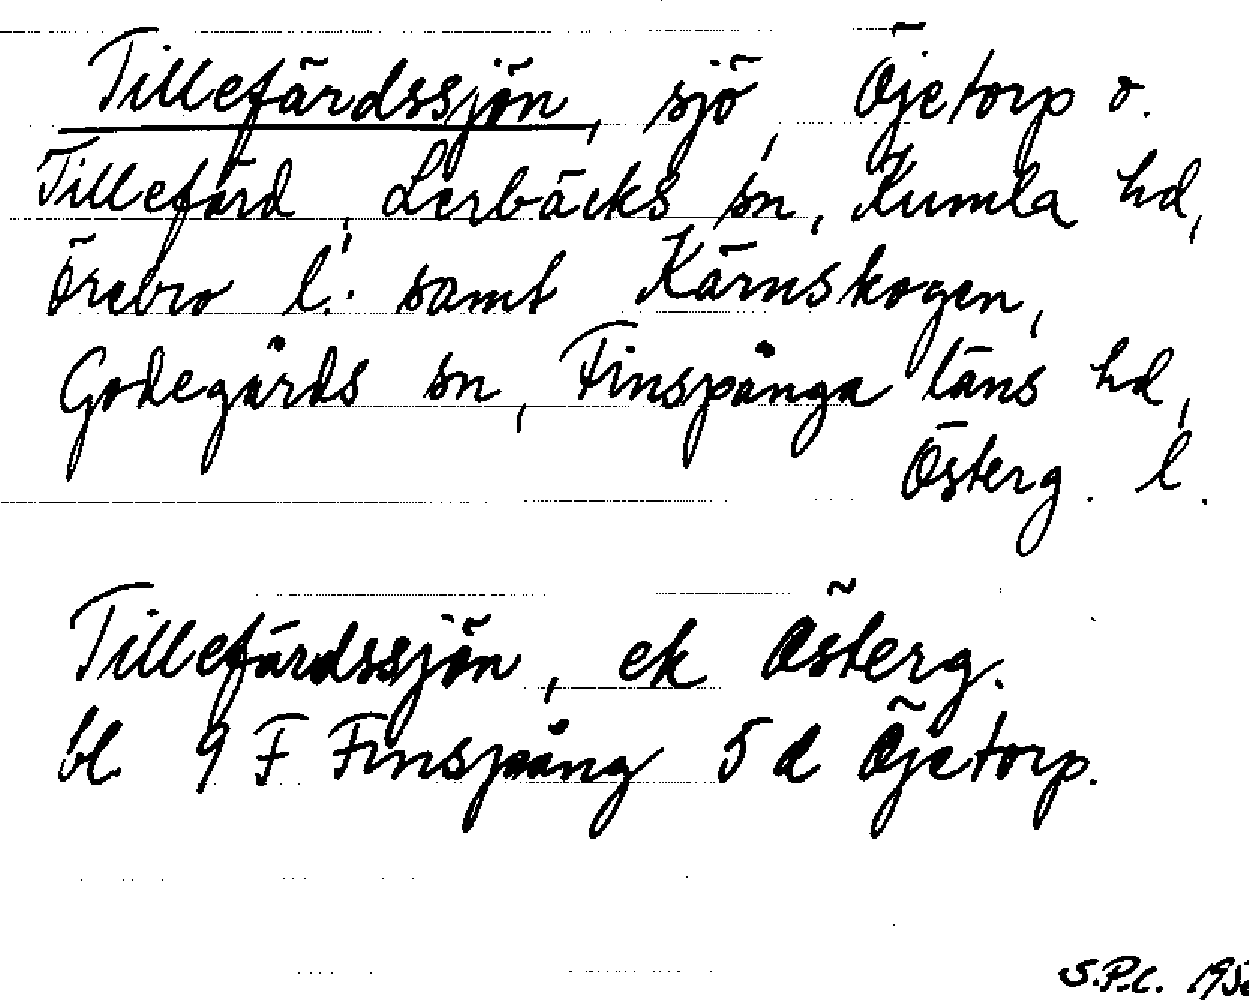 Tillefärdssjön, sjö, Öjetorp o.
Tillefärd, Lerbäcks sn, Kumla hd,
Örebro l. samt Kärnskogen,
Godegårds sn, Finspånga läns hd,
Österg. l.
Tillefärdssjön, ek Österg.
bl. 9 F Finspång 5 d Öjetorp.
S.P.C.